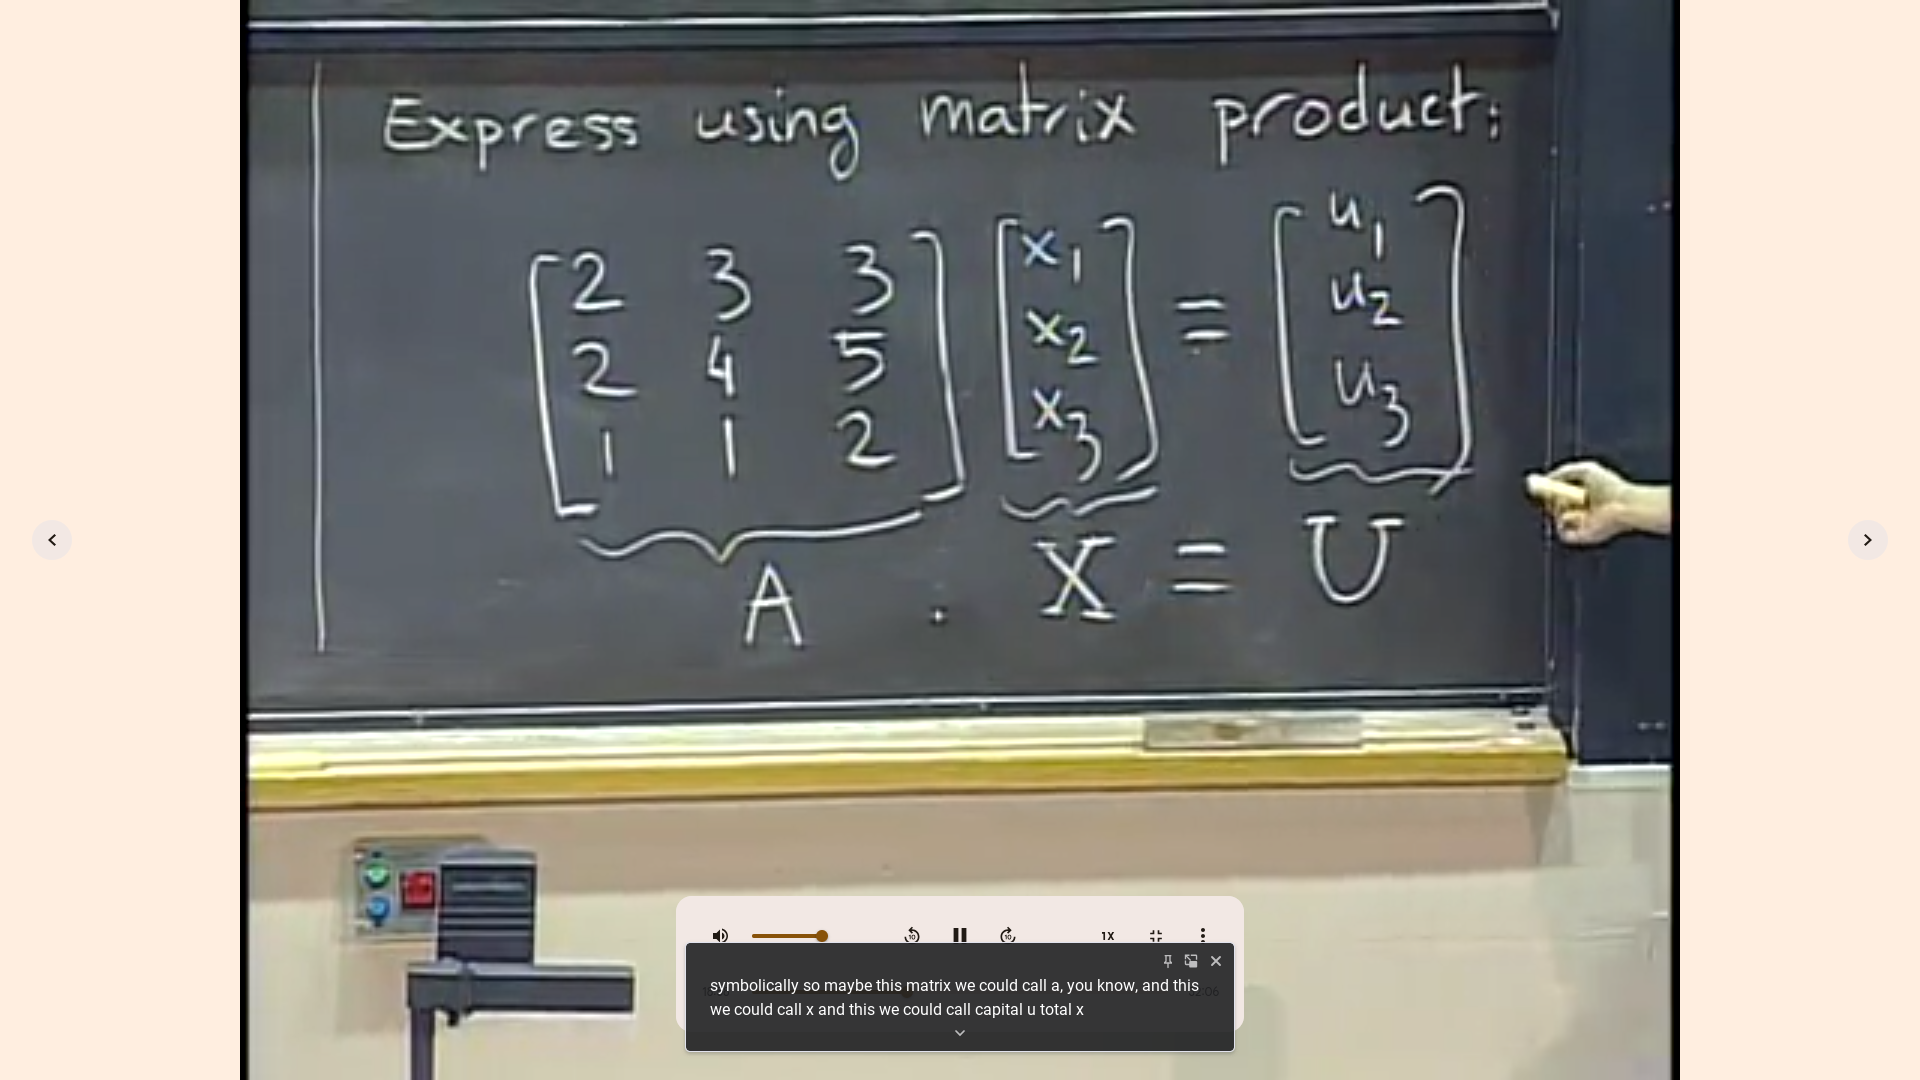 Express using matrix product:
[2 3 3] [x1] = [u1]
[2 4 5] [x2] [u2]
[1 1 2] [x3] [u3]
A . X = U
10 10 1X
symbolically so maybe this matrix we could call a, you know, and this
we could call x and this we could call capital u total x